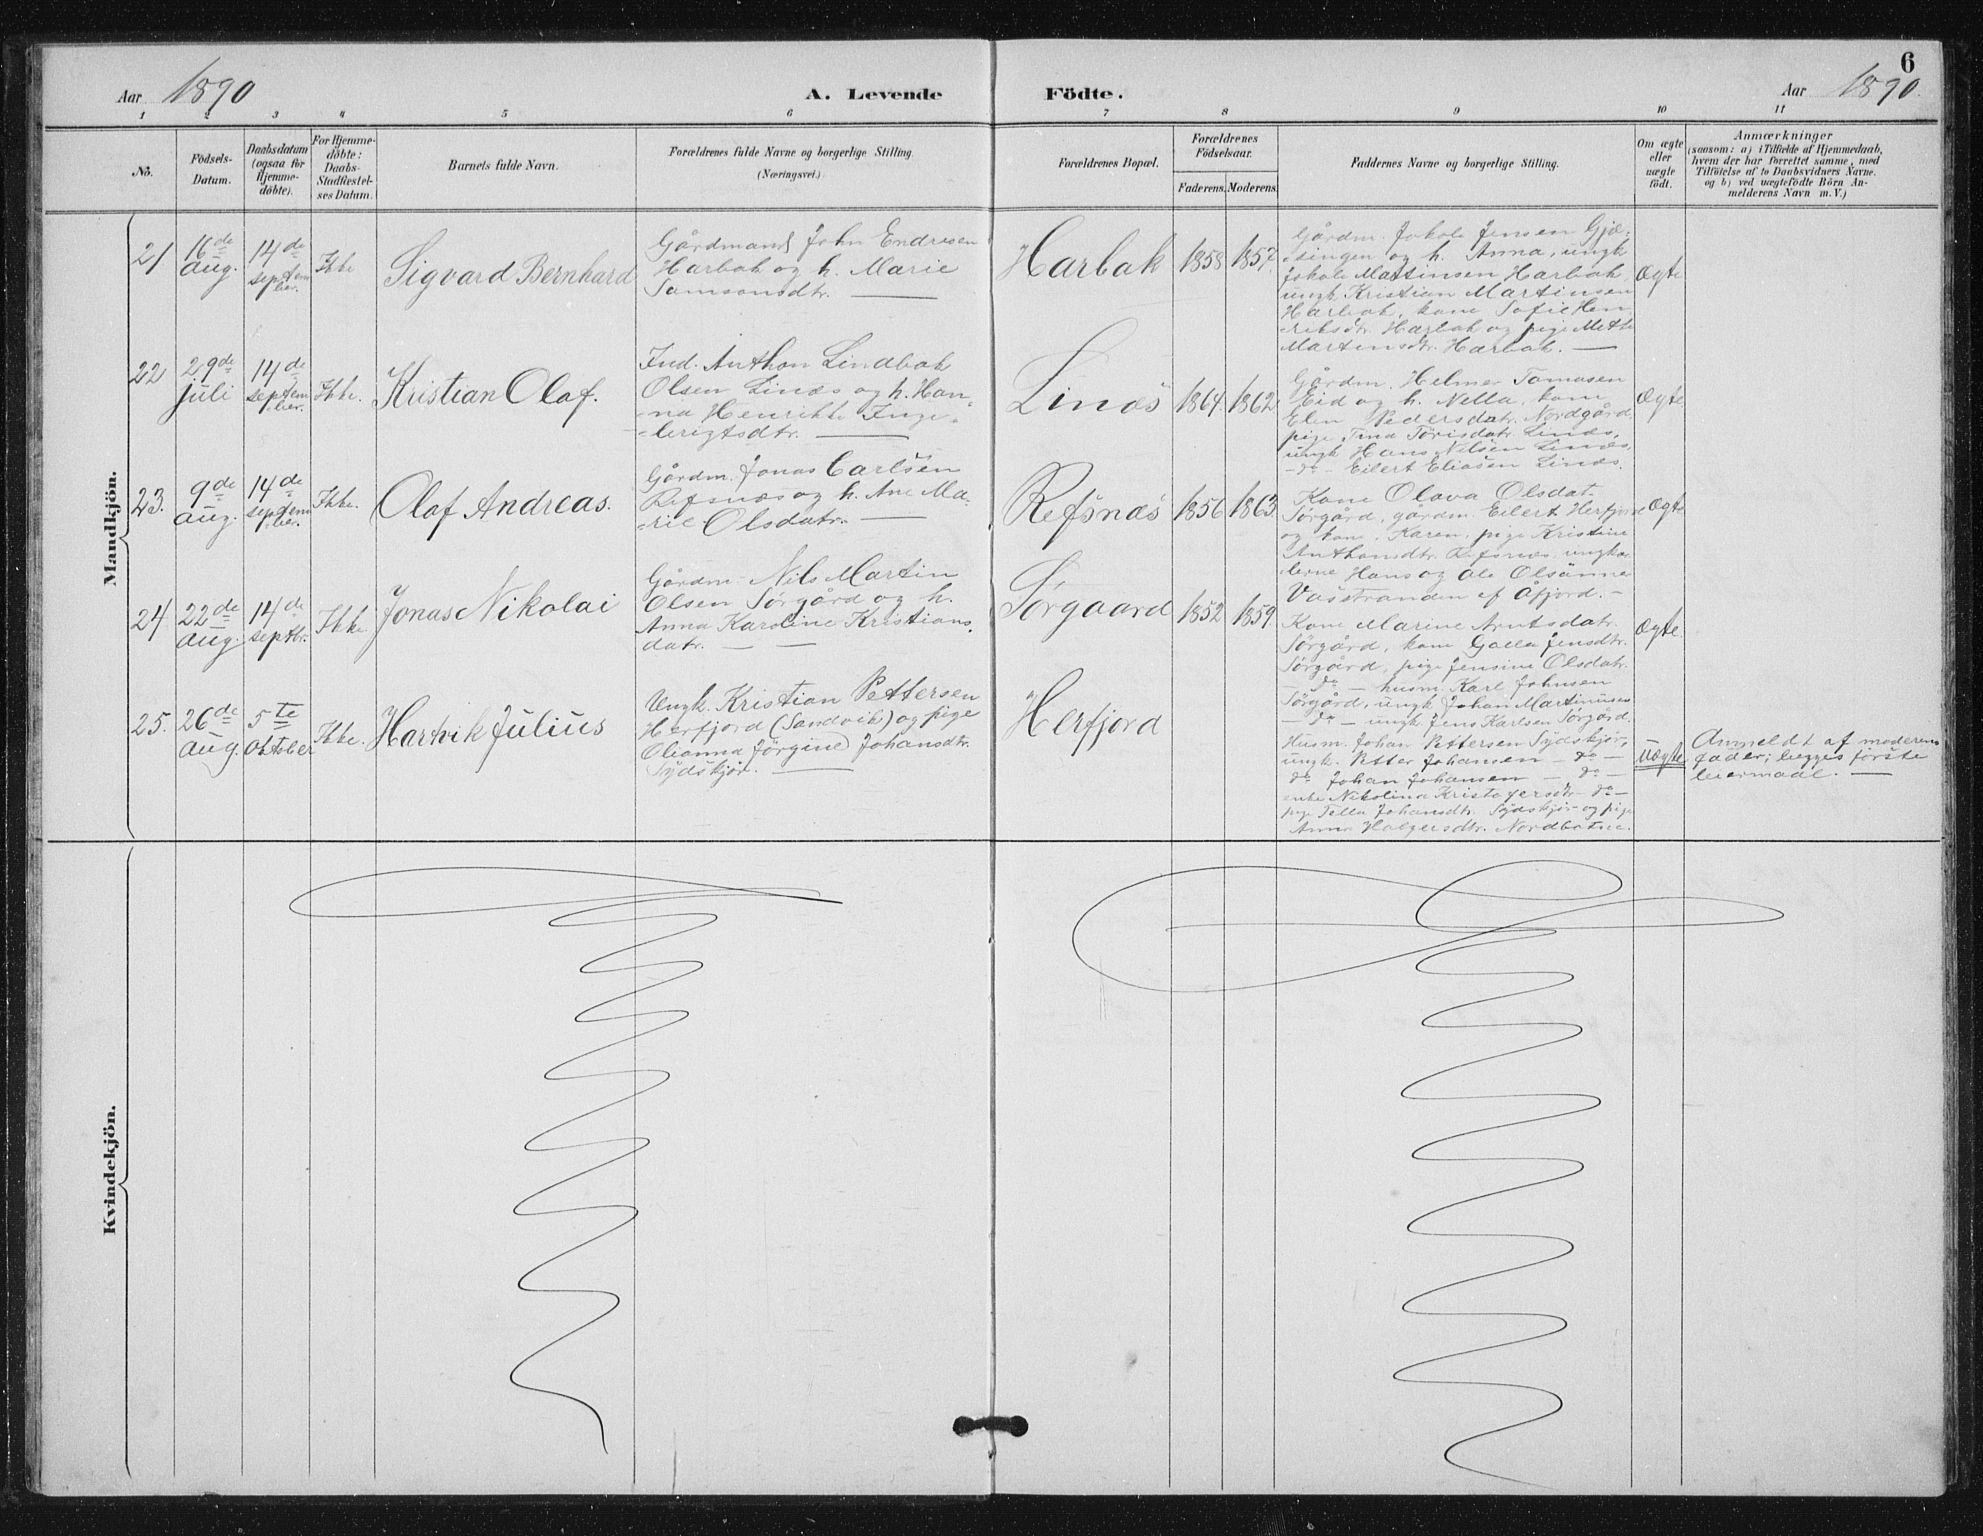 6
Aar 1890
A. Levende Födte.
Aar 1890.
1 2 3 4 5 6 7 8 9 10 11
No.
Födsels-
Datum.
Daabsdatum
(ogsaa for
Hjemme-
döbte).
For Hjemme-
döbte:
Daabs-
Stadfæstel-
ses Datum.
Barnets fulde Navn.
Forældrenes fulde Navne og borgerlige Stilling.
(Næringsvei.)
Forældrenes Bopæl.
Forældrenes
Födselsaar.
Faderens. Moderens.
Faddernes Navne og borgerlige Stilling.
Om ægte
eller
uægte
födt.
Anmærkninger
(saasom: a) i Tilfælde af Hjemmedaab,
hvem der har forrettet samme, med
Tilföielse af to Daabsvidners Navne.
og b) ved uægtefödte Börn An-
melderens Navn m. V.)
Mandkjön.
21
16de
aug.
14de
septem
ber.
Ikke
Sigvard Bernhard
Gårdmand John Endresen
Harbak og h. Marie
Samsonsdtr. —
Harbak
1858
1857.
Gårdm. Jakob Jensen Gjæ-
singen og h. Anna, ungk
Jakob Martinsen Harbak
ungk Kristian Martinsen
Harbak, kone Sofie Hen
riksdtr. Harbak og pige Mette
Martinsdtr. Harbak. —
Ægte
22
29de
juli
14de
septem
ber.
Ikke.
Kristian Olaf.
Ind. Anthon Lindbak
Olsen Linæs og h. Han-
-na Henrikke Inge-
-brigtsdtr. —
Linæs
1864.
1862
Gårdm. Helmer Tomasen
Eid og h. Nella, kone
Elen Pedersdatr. Nordgård
pige Tina Tørisdatr. Linæs,
ungk Hans Nilsen Linæs,
- do - Eilert Eliasen Linæs.
Ægte
23.
9de
aug.
14de
septem
ber.
Ikke.
Olaf Andreas.
Gårdm. Jonas Carlsen
Refsnæs og h. Ane Ma-
-rie Olsdatr. —
Refsnæs
1856
1863
Kone Olava Olsdat.
Sørgård, gårdm. Eilert Herfjord
og kone Karen, pige Kristine
Anthonsdtr. Refsnæs, ungka-
lerne Hans og Ole Olsønner
Vasstranden af Åfjord. -
Ægte
24
22de
aug.
14de
septbr.
Ikke.
Jonas Nikolai
Gårdm. Nils Martin
Olsen Sørgård og h.
Anna Karoline Kristians
datr. — —
Sørgaard
1852
1859.
Kone Marine Arntsdatr.
Sørgård, kone Jensdtr.
Sørgård, pige Jensine Olsdatr.
- do - husm. Karl Johnsen
Sørgård, ungk Johan Martinusen
- do - ungk Jens Karlsen Sørgård.
Ægte.
25.
26de
aug.
5te
oktober
Ikke.
Hartvik Julius
Ungk. Kristian Pettersen
Herfjord (Sandvik) og pige
Olianna Jørgine Johansdtr.
Sydskjør. —
Herfjord
Husm. Johan Pettersen Sydskjør,
ungk. Petter Johansen - do -
do Johan Johansen - do -
enke Nikolina Kristofersdtr - do -
pige Tella Johansdtr. Sydskjør og pige
Anna Holgersdtr. Nordbotne.
Uægte
Anmeldt af moderens
fader; begges første
leiermaal. —
Kvindekjön.